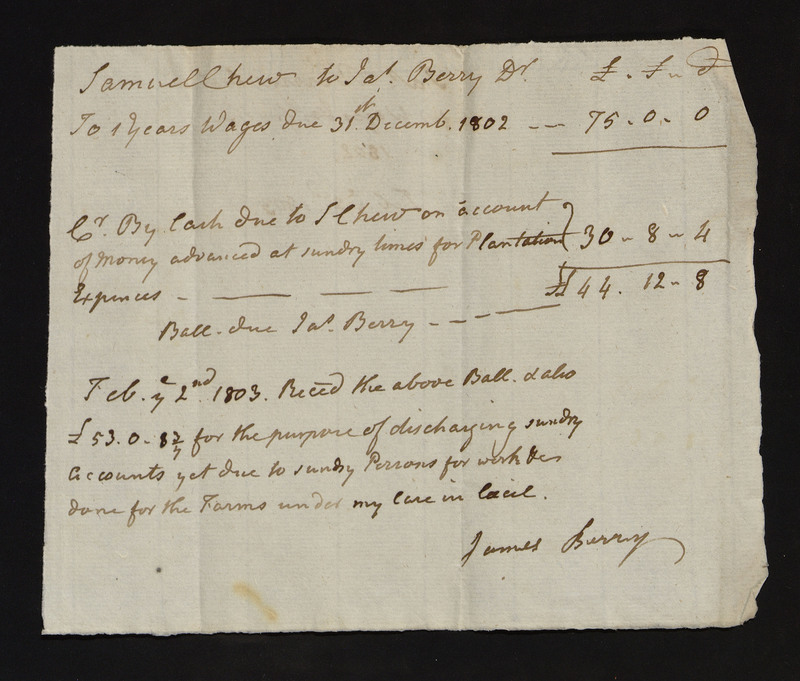 Samuel Chew to Jas. Berry Dr. £ - s - d
To 1 Years Wages due 31st. Decemb. 1802 -- 75 - 0 - 0
Cr. By Cash due to S Chew on account
of Money advanced at sundry times for Plantation } 30 - 8 - 4
Expences - — — — £ 44 . 12 - 8
Ball. due Jas. Berry - - - —
Feb. ye 2nd. 1803. Reced the above Ball. & also
£ 53. 0 - 8 for the purpose of discharging sundry
accounts yet due to sundry Persons for work &c
done for the Farms under my Care in Cecil.
James Berry